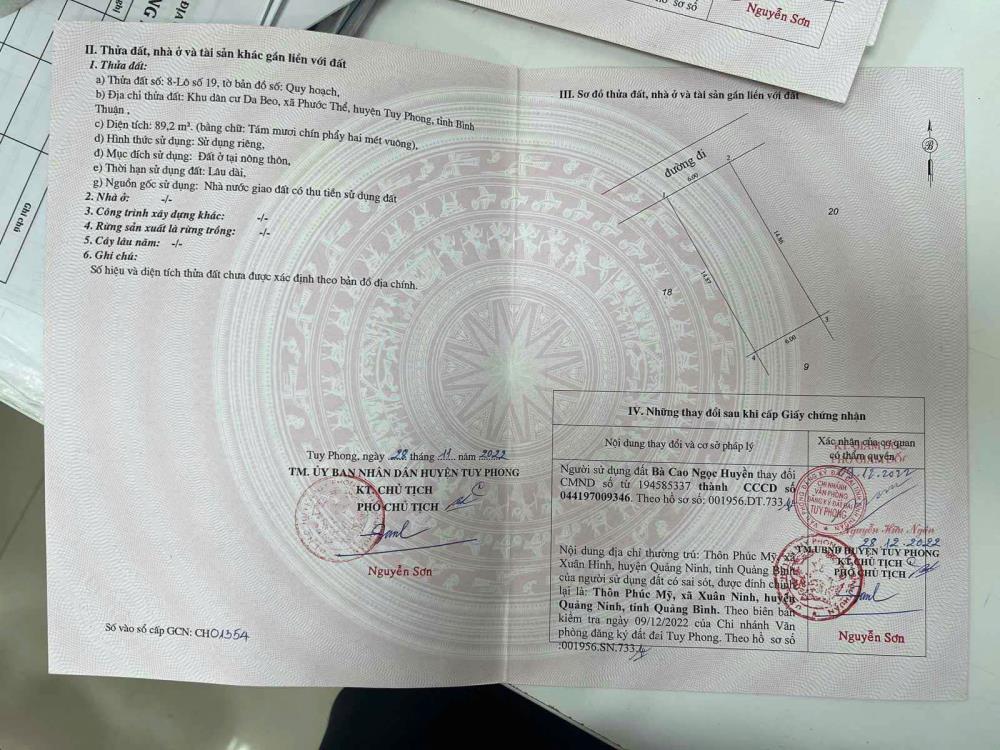 hồ sơ số
Nguyễn Sơn
Ghi chú
II. Thửa đất, nhà ở và tài sản khác gắn liền với đất
1. Thửa đất:
a) Thửa đất số: 8-Lô số 19, tờ bản đồ số: Quy hoạch,
b) Địa chỉ thửa đất: Khu dân cư Da Beo, xã Phước Thể, huyện Tuy Phong, tỉnh Bình
Thuận .
c) Diện tích: 89,2 m². (bằng chữ: Tám mươi chín phẩy hai mét vuông),
d) Hình thức sử dụng: Sử dụng riêng,
đ) Mục đích sử dụng: Đất ở tại nông thôn,
e) Thời hạn sử dụng đất: Lâu dài,
g) Nguồn gốc sử dụng: Nhà nước giao đất có thu tiền sử dụng đất
2. Nhà ở: -/-
3. Công trình xây dựng khác: -/-
4. Rừng sản xuất là rừng trồng: -/-
5. Cây lâu năm: -/-
6. Ghi chú:
Số hiệu và diện tích thửa đất chưa được xác định theo bản đồ địa chính.
Tuy Phong, ngày 28 tháng 11 năm 2022
TM. ỦY BAN NHÂN DÂN HUYỆN TUY PHONG
KT. CHỦ TỊCH
PHÓ CHỦ TỊCH
Nguyễn Sơn
Số vào sổ cấp GCN: CH01354
III. Sơ đồ thửa đất, nhà ở và tài sản gắn liền với đất
B
đường đi
1
6.00
2
20
14.86
14.87
18
3
6.00
4
9
IV. Những thay đổi sau khi cấp Giấy chứng nhận
Nội dung thay đổi và cơ sở pháp lý
Xác nhận của cơ quan
có thẩm quyền
Người sử dụng đất Bà Cao Ngọc Huyền thay đổi
CMND số từ 194585337 thành CCCD số
044197009346. Theo hồ sơ số: 001956.DT.733
KT. GIÁM ĐỐC
PHÓ GIÁM ĐỐC
09.12.2022
CHI NHÁNH
VĂN PHÒNG
ĐĂNG KÝ ĐẤT ĐAI
TUY PHONG
Nguyễn Hữu Ngân
Nội dung địa chỉ thường trú: Thôn Phúc Mỹ, xã
Xuân Hinh, huyện Quảng Ninh, tỉnh Quảng Bình
của người sử dụng đất có sai sót, được đính chính
lại là: Thôn Phúc Mỹ, xã Xuân Ninh, huyện
Quảng Ninh, tỉnh Quảng Bình. Theo biên bản
kiểm tra ngày 09/12/2022 của Chi nhánh Văn
phòng đăng ký đất đai Tuy Phong. Theo hồ sơ số
:001956.SN.733
28.12.2022
TM.UBND HUYỆN TUY PHONG
KT.CHỦ TỊCH
PHÓ CHỦ TỊCH
Nguyễn Sơn